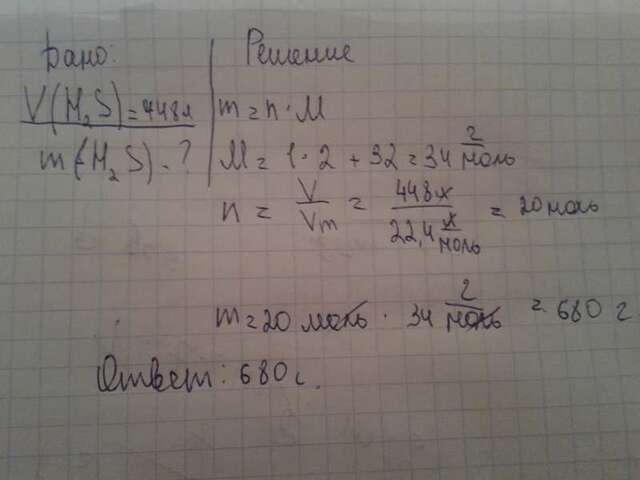 Дано:
V(H₂S)=448л
m(H₂S)-?
Решение
m=n·M
M=1·2+32=34 г/моль
n = V/Vm = 448л/22,4 л/моль = 20моль
m=20 моль · 34 г/моль = 680 г
Ответ: 680г.